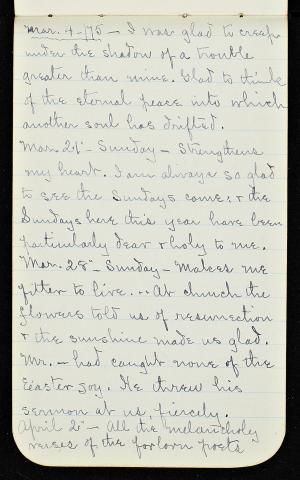 Mar. 4-/75 - I was glad to creep
under the shadow of a trouble
greater than mine. Glad to think
of the eternal peace into which
another soul has drifted.
Mar. 21" - Sunday - Strengthens
my heart. I am always so glad
to see the Sundays come; & the
Sundays here this year have been
particularly dear & holy to me.
Mar. 28" - Sunday - Makes me
fitter to live. .. At church the
flowers told us of resurrection
& the sunshine made us glad.
Mr. - had caught none of the
Easter joy. He threw his
sermon at us, fiercely.
April 2" - All the melancholy
verses of the forlorn poets